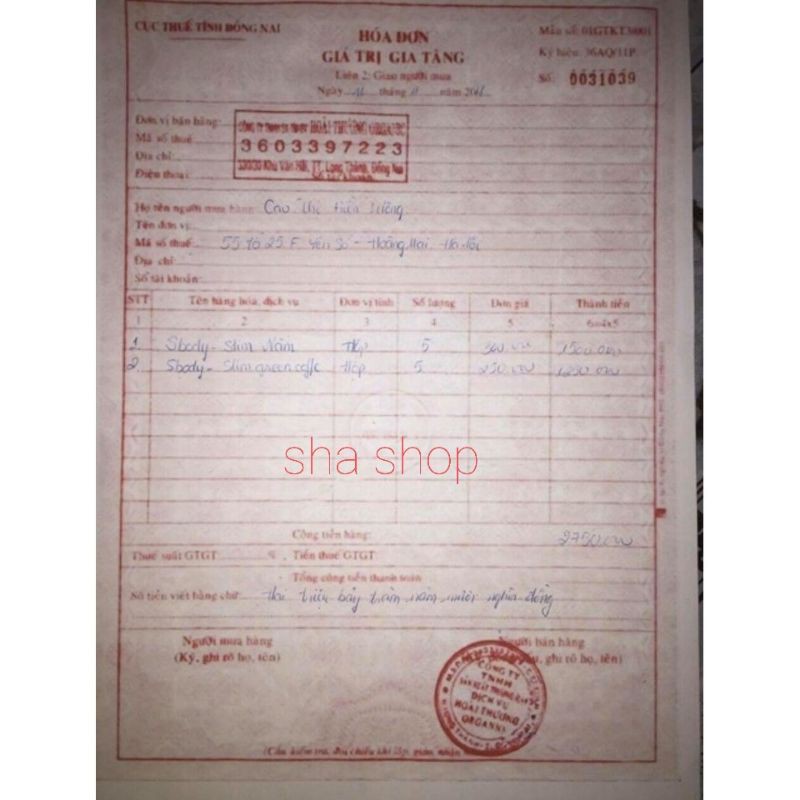 CỤC THUẾ TỈNH ĐỒNG NAI
HÓA ĐƠN
GIÁ TRỊ GIA TĂNG
Liên 2: Giao người mua
Ngày 11 tháng 11 năm
Mẫu số: 01GTKT3/001
Ký hiệu: 36AQ/11P
Số: 0031039
Đơn vị bán hàng:
Mã số thuế:
Địa chỉ:
Điện thoại:
HOÀI THƯƠNG ORGANIC
3603397223
Khu Văn Hải, TT. Long Thành, Đồng Nai
Họ tên người mua hàng: Cao Thị Hiền
Tên đơn vị:
Mã số thuế: 55 Tổ 25 F. Yên Sở - Hoàng Mai. Hà Nội
Địa chỉ:
Số tài khoản:
STT Tên hàng hóa, dịch vụ Đơn vị tính Số lượng Đơn giá Thành tiền
1 2 3 4 5 6=4x5
1. Sbody - Slim Nấm Hộp 5 300.000 1500.000
2. Sbody - Slim green coffe Hộp 5 250.000 1250.000
sha shop
Cộng tiền hàng: 2750.000
Thuế suất GTGT: % Tiền thuế GTGT:
Tổng cộng tiền thanh toán
Số tiền viết bằng chữ: Hai triệu bảy trăm năm mươi nghìn đồng
Người mua hàng
(Ký, ghi rõ họ, tên)
Người bán hàng
ghi rõ họ, tên)
CÔNG TY
TNHH
DỊCH VỤ
HOÀI THƯƠNG
ORGANIC
(Cần kiểm tra, đối chiếu khi lập, giao, nhận